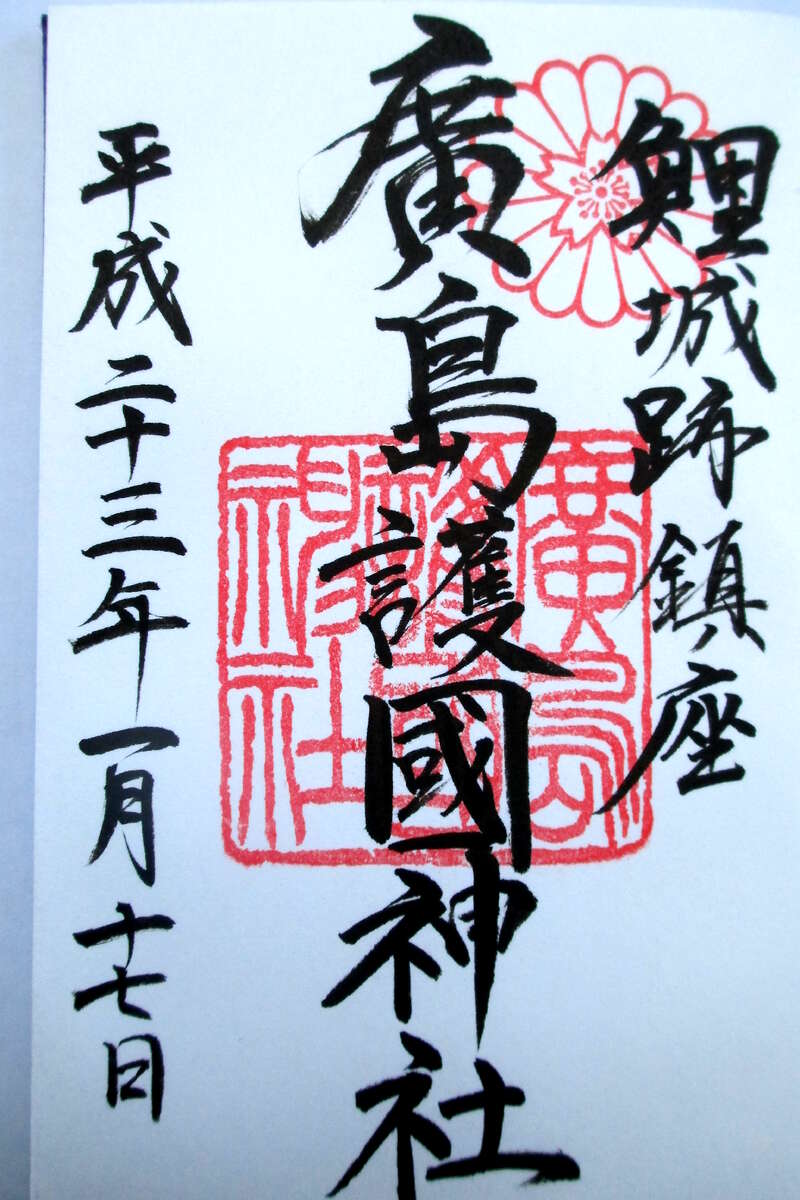 鯉城跡鎮座
廣島護國神社
廣島護國神社
平成二十三年一月十七日